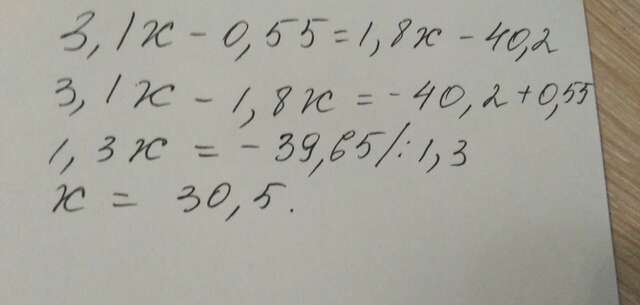 3,1x - 0,55 = 1,8x - 40,2
3,1x - 1,8x = -40,2 + 0,55
1,3x = -39,65 /: 1,3
x = 30,5.